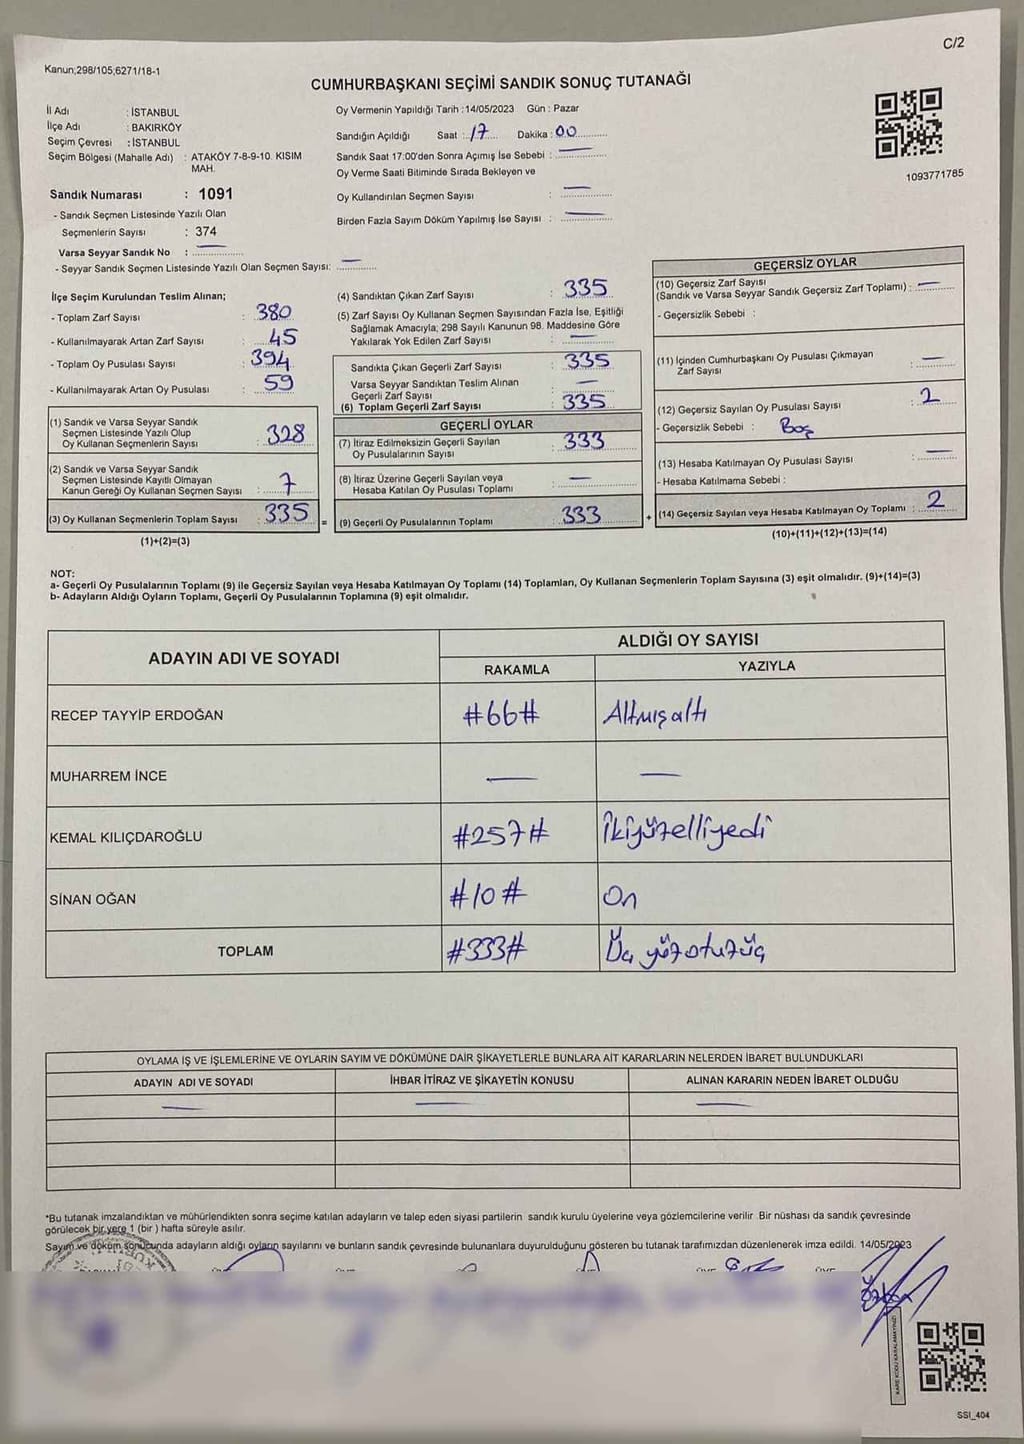 C/2
Kanun;298/105,6271/18-1
CUMHURBAŞKANI SEÇİMİ SANDIK SONUÇ TUTANAĞI
İl Adı : İSTANBUL
İlçe Adı : BAKIRKÖY
Seçim Çevresi : İSTANBUL
Seçim Bölgesi (Mahalle Adı) : ATAKÖY 7-8-9-10. KISIM MAH.
Sandık Numarası : 1091
- Sandık Seçmen Listesinde Yazılı Olan
Seçmenlerin Sayısı : 374
Varsa Seyyar Sandık No : —
- Seyyar Sandık Seçmen Listesinde Yazılı Olan Seçmen Sayısı: —
Oy Vermenin Yapıldığı Tarih :14/05/2023 Gün : Pazar
Sandığın Açıldığı Saat : 17 Dakika : 00
Sandık Saat 17:00'den Sonra Açımış İse Sebebi : —
Oy Verme Saati Bitiminde Sırada Bekleyen ve
Oy Kullandırılan Seçmen Sayısı : —
Birden Fazla Sayım Döküm Yapılmış İse Sayısı : —
1093771785
İlçe Seçim Kurulundan Teslim Alınan;
- Toplam Zarf Sayısı : 380
- Kullanılmayarak Artan Zarf Sayısı : 45
- Toplam Oy Pusulası Sayısı : 394
- Kullanılmayarak Artan Oy Pusulası : 59
(1) Sandık ve Varsa Seyyar Sandık
Seçmen Listesinde Yazılı Olup
Oy Kullanan Seçmenlerin Sayısı : 328
(2) Sandık ve Varsa Seyyar Sandık
Seçmen Listesinde Kayıtlı Olmayan
Kanun Gereği Oy Kullanan Seçmen Sayısı : 7
(3) Oy Kullanan Seçmenlerin Toplam Sayısı : 335 =
(1)+(2)=(3)
(4) Sandıktan Çıkan Zarf Sayısı : 335
(5) Zarf Sayısı Oy Kullanan Seçmen Sayısından Fazla İse, Eşitliği
Sağlamak Amacıyla, 298 Sayılı Kanunun 98. Maddesine Göre
Yakılarak Yok Edilen Zarf Sayısı : —
Sandıkta Çıkan Geçerli Zarf Sayısı : 335
Varsa Seyyar Sandıktan Teslim Alınan
Geçerli Zarf Sayısı : —
(6) Toplam Geçerli Zarf Sayısı : 335
GEÇERLİ OYLAR
(7) İtiraz Edilmeksizin Geçerli Sayılan
Oy Pusulalarının Sayısı : 333
(8) İtiraz Üzerine Geçerli Sayılan veya
Hesaba Katılan Oy Pusulası Toplamı : —
(9) Geçerli Oy Pusulalarının Toplamı : 333 +
GEÇERSİZ OYLAR
(10) Geçersiz Zarf Sayısı
(Sandık ve Varsa Seyyar Sandık Geçersiz Zarf Toplamı) : —
- Geçersizlik Sebebi :
(11) İçinden Cumhurbaşkanı Oy Pusulası Çıkmayan
Zarf Sayısı : —
(12) Geçersiz Sayılan Oy Pusulası Sayısı : 2
- Geçersizlik Sebebi : Boş
(13) Hesaba Katılmayan Oy Pusulası Sayısı : —
- Hesaba Katılmama Sebebi :
(14) Geçersiz Sayılan veya Hesaba Katılmayan Oy Toplamı : 2
(10)+(11)+(12)+(13)=(14)
NOT:
a- Geçerli Oy Pusulalarının Toplamı (9) ile Geçersiz Sayılan veya Hesaba Katılmayan Oy Toplamı (14) Toplamları, Oy Kullanan Seçmenlerin Toplam Sayısına (3) eşit olmalıdır. (9)+(14)=(3)
b- Adayların Aldığı Oyların Toplamı, Geçerli Oy Pusulalarının Toplamına (9) eşit olmalıdır.
ADAYIN ADI VE SOYADI ALDIĞI OY SAYISI
RAKAMLA YAZIYLA
RECEP TAYYİP ERDOĞAN #66# Altmışaltı
MUHARREM İNCE — —
KEMAL KILIÇDAROĞLU #257# İkiyüzelliyedi
SİNAN OĞAN #10# On
TOPLAM #333# Üç yüzotuzüç
OYLAMA İŞ VE İŞLEMLERİNE VE OYLARIN SAYIM VE DÖKÜMÜNE DAİR ŞİKAYETLERLE BUNLARA AİT KARARLARIN NELERDEN İBARET BULUNDUKLARI
ADAYIN ADI VE SOYADI İHBAR İTİRAZ VE ŞİKAYETİN KONUSU ALINAN KARARIN NEDEN İBARET OLDUĞU
— — —
*Bu tutanak imzalandıktan ve mühürlendikten sonra seçime katılan adayların ve talep eden siyasi partilerin sandık kurulu üyelerine veya gözlemcilerine verilir. Bir nüshası da sandık çevresinde
görülecek bir yere 1 (bir ) hafta süreyle asılır.
Sayım ve döküm sonucunda adayların aldığı oyların sayılarını ve bunların sandık çevresinde bulunanlara duyurulduğunu gösteren bu tutanak tarafımızdan düzenlenerek imza edildi. 14/05/2023
KARE KODU KARALAMAYINIZ!
SSI_404